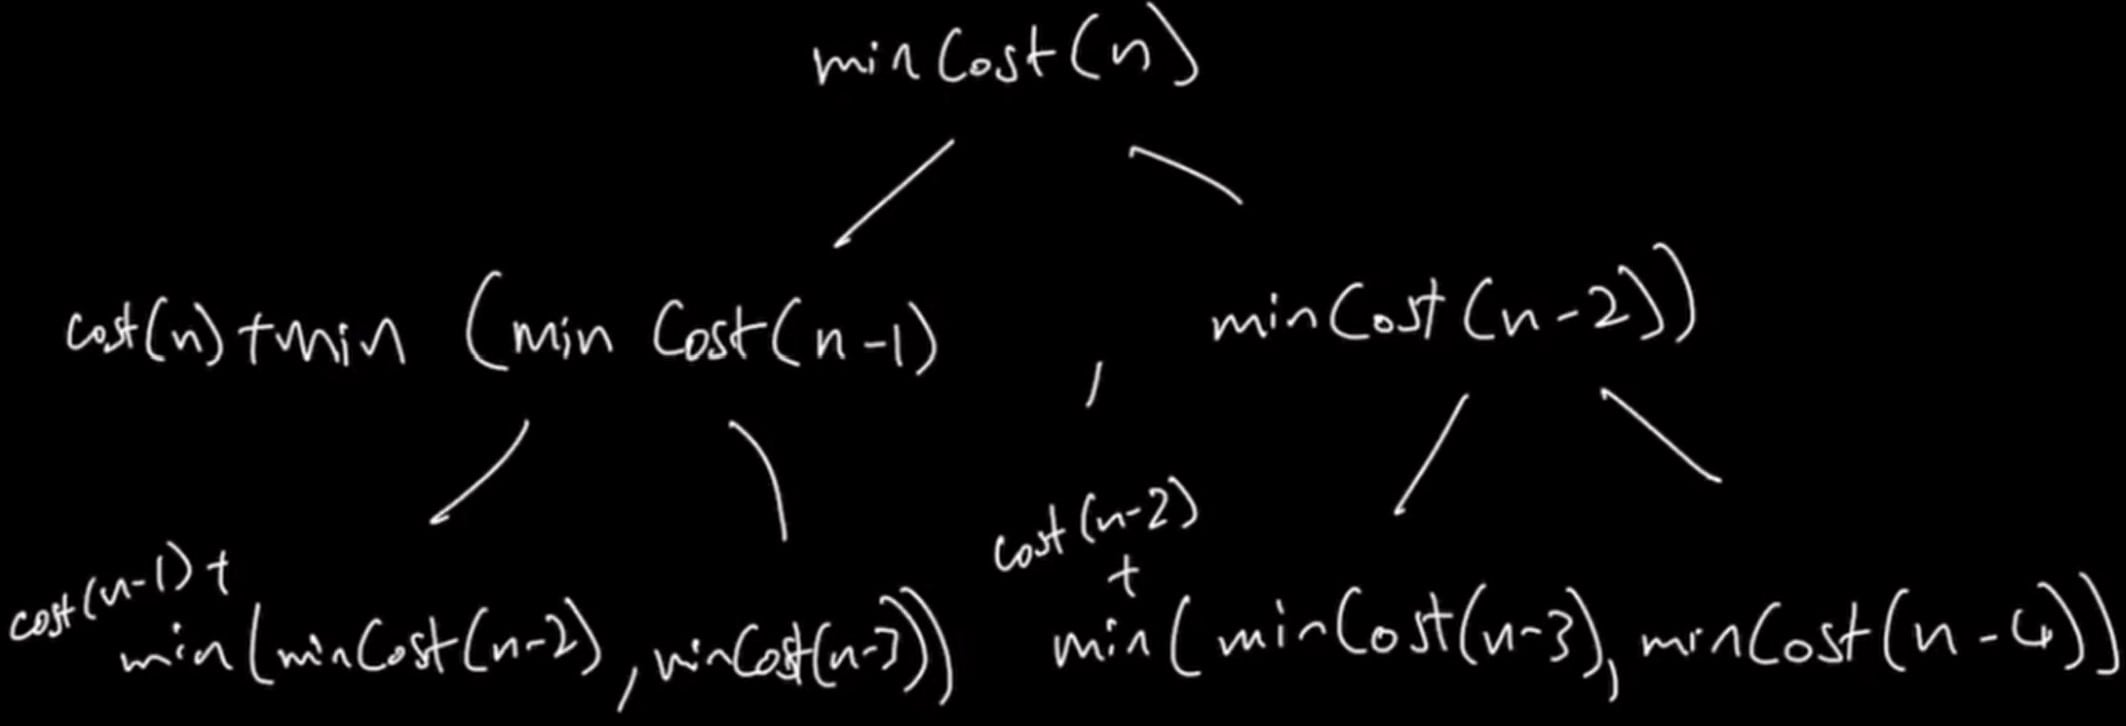 minCost(n)
cost(n)+min (min Cost(n-1) , minCost(n-2))
cost(n-1)+ cost(n-2) +
min(minCost(n-2), minCost(n-3)) min(minCost(n-3), minCost(n-4))